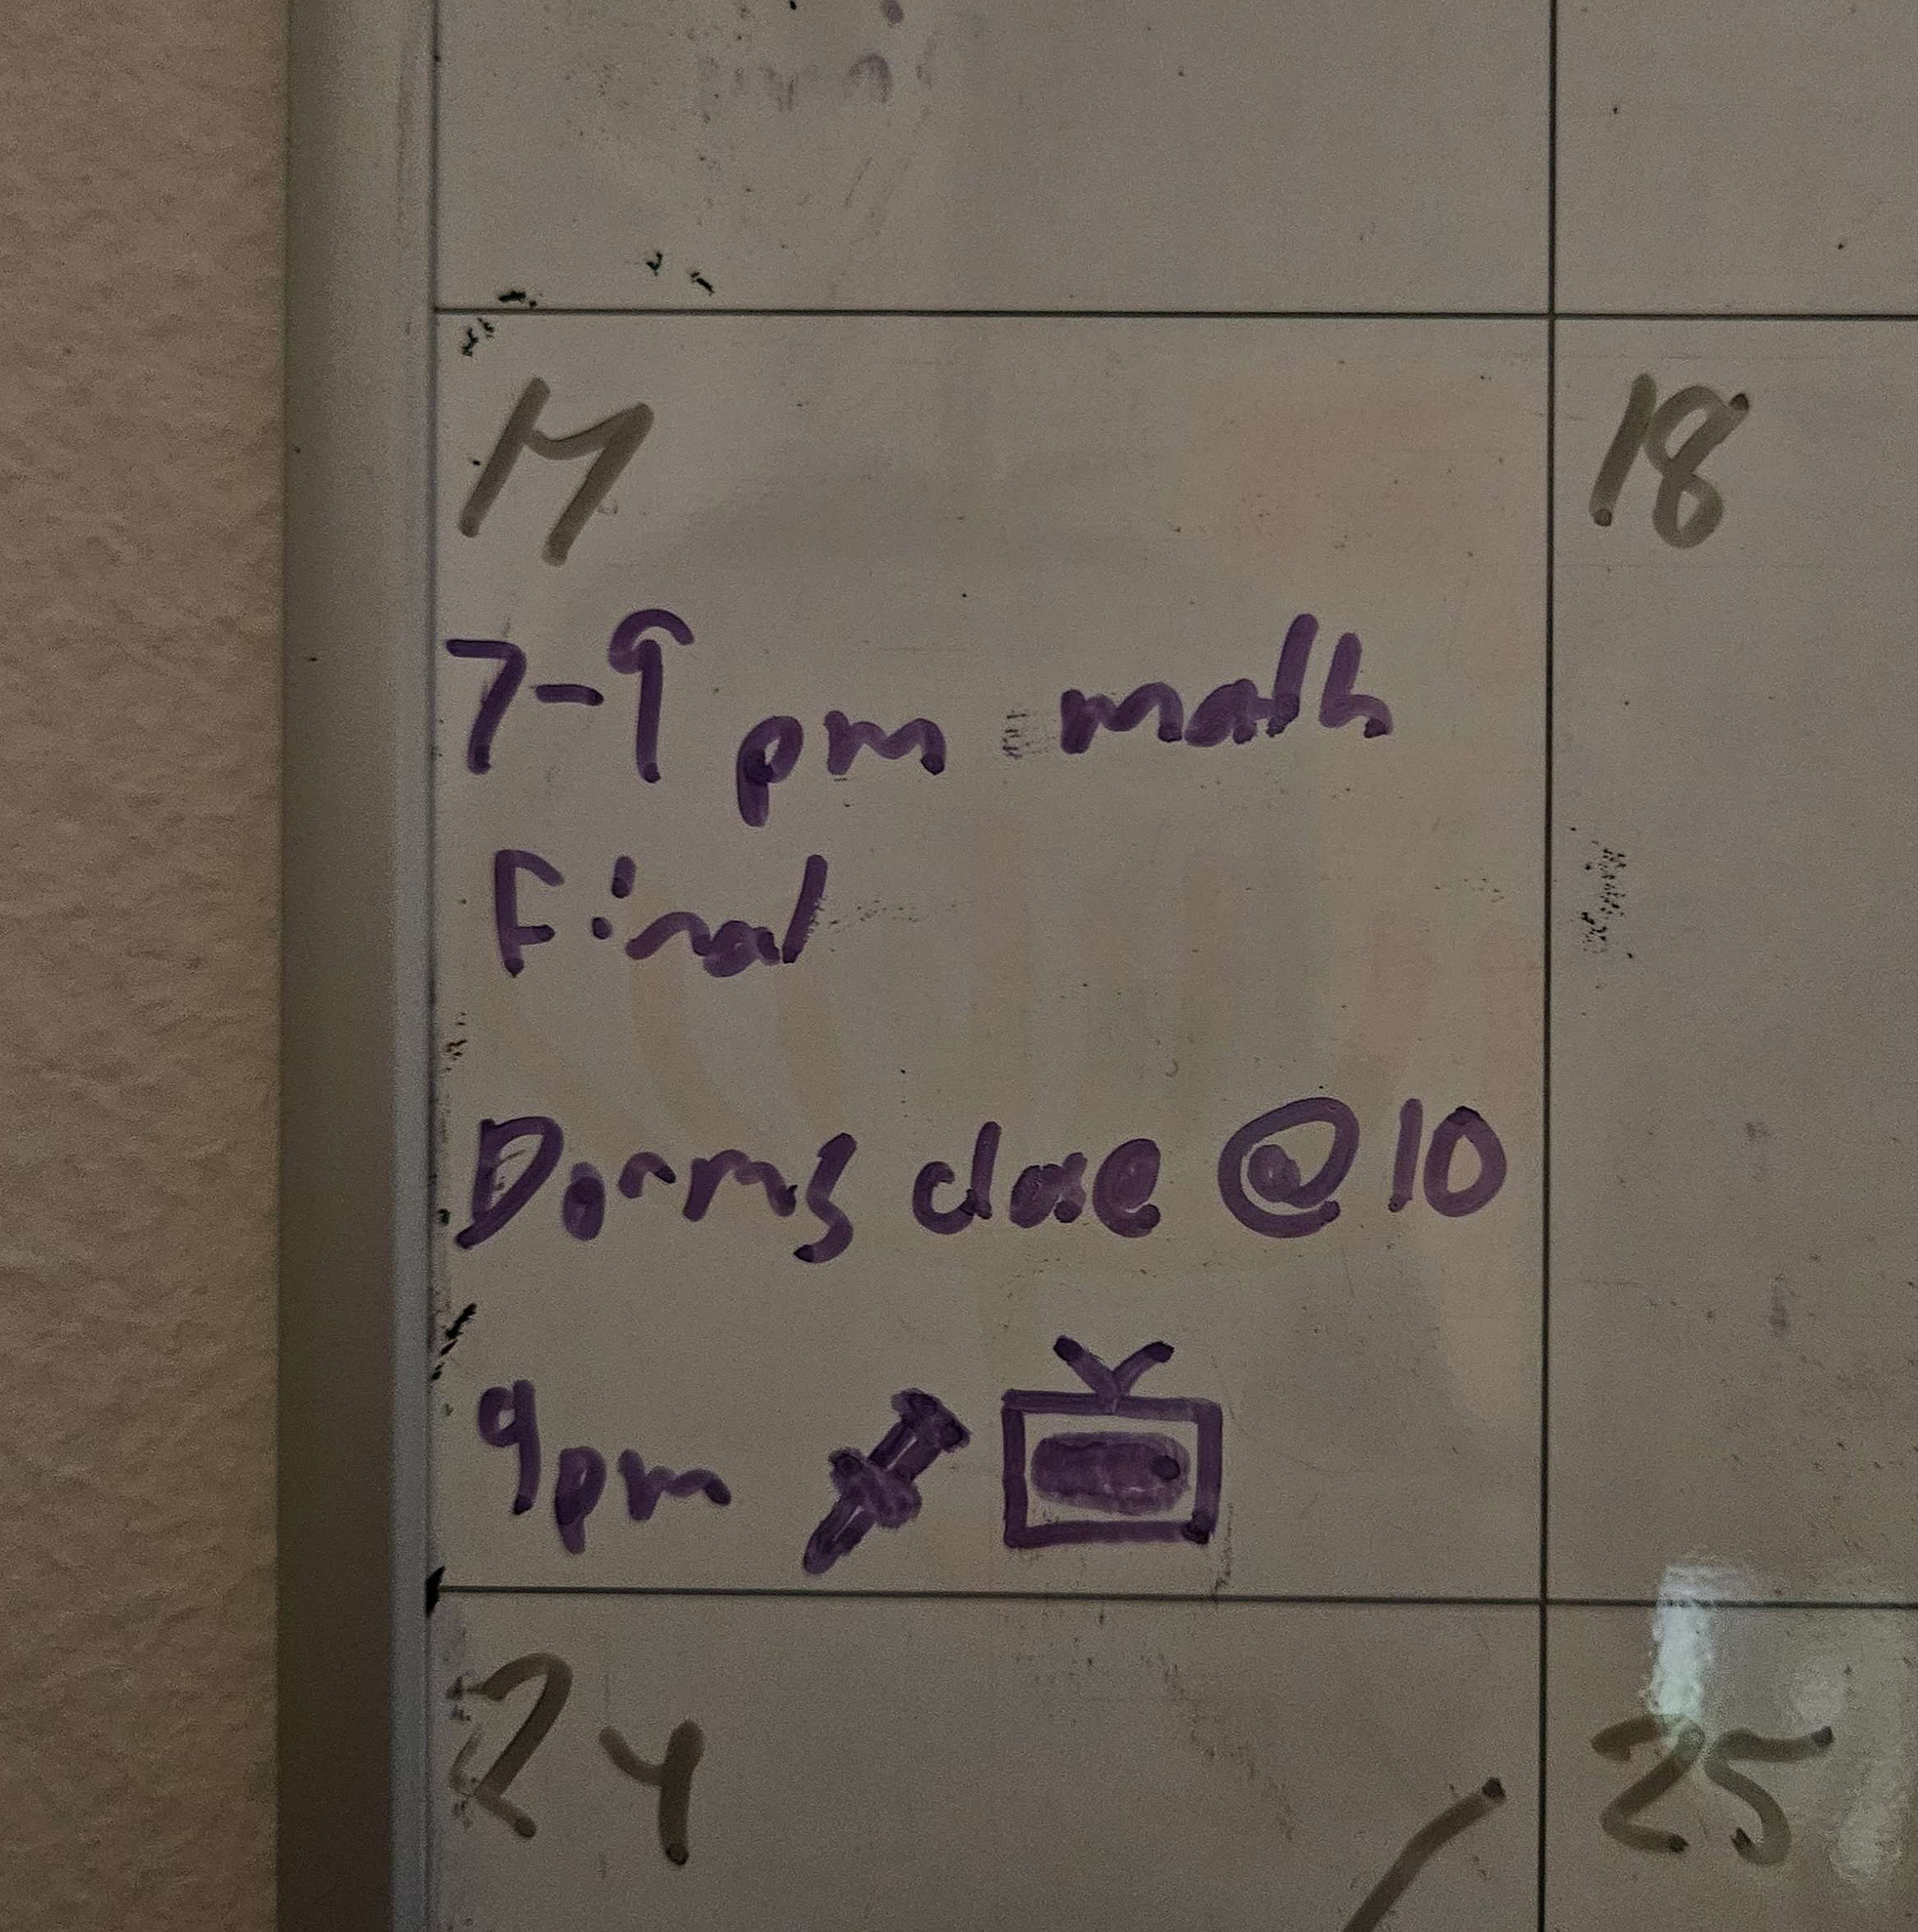 17
18
7-9 pm math
Final
Dorms close @ 10
9pm
24
25